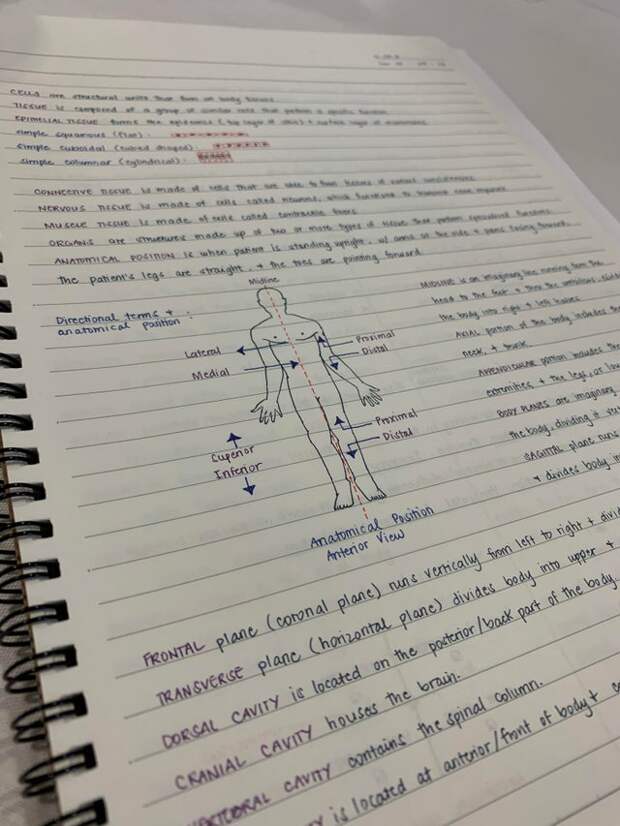 CELLS are structural units that form all body tissues
TISSUE is composed of a group of similar cells that perform a specific function.
EPITHELIAL TISSUE forms the epidermis (top layer of skin) + surface layer of membranes.
simple squamous (flat) :
simple cuboidal (cubed shaped) :
simple columnar (cylindrical) :
CONNECTIVE TISSUE is made of cells that are able to form tissues of various consistencies
NERVOUS TISSUE is made of cells called neurons, which function to transmit nerve impulses
MUSCLE TISSUE is made of cells called contractile fibers
ORGANS are structures made up of two or more types of tissue that perform specialized functions.
ANATOMICAL POSITION is when patient is standing upright, w/ arms at the side + palms facing forward.
The patient's legs are straight, + the toes are pointing forward.
Directional terms + anatomical position :
Midline
Lateral
Medial
Proximal
Distal
Proximal
Distal
Cuperior
Inferior
Anatomical Position
Anterior View
MIDLINE is an imaginary line running from the
head to the feet + thru the umbilicus,
the body into right + left halves
AXIAL portion of the body includes the
neck, + trunk.
APPENDICULAR portion includes the
extremities + the legs, or
BODY PLANES are imaginary
the body, dividing it
SAGITAL plane runs
+ divides body in
FRONTAL plane (coronal plane) runs vertically from left to right +
TRANSVERSE plane (horizontal plane) divides body into upper +
DORSAL CAVITY is located on the posterior/back part of the body.
CRANIAL CAVITY houses the brain.
CAVITY contains the spinal column.
is located at anterior/front of body +